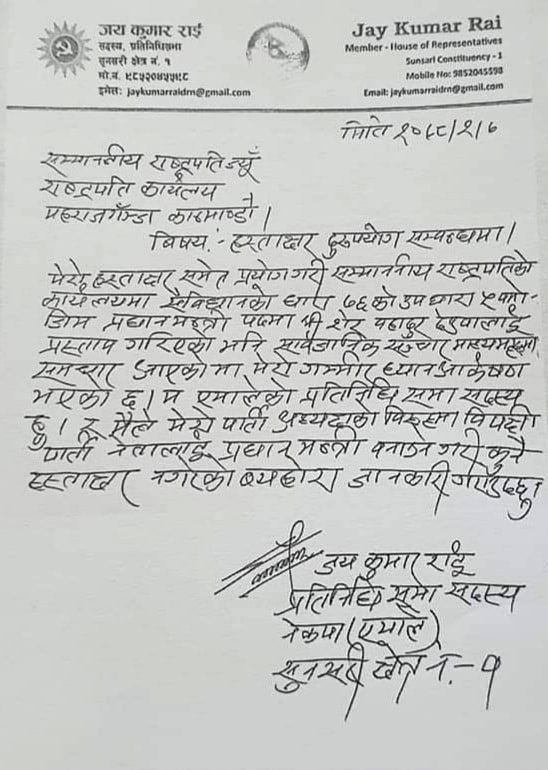 जय कुमार राई
सदस्य, प्रतिनिधिसभा
सुनसरी क्षेत्र नं. १
मो.नं. ९८५२०४५५९८
इमेल: jaykumarraidrn@gmail.com
Jay Kumar Rai
Member - House of Representatives
Sunsari Constituency - 1
Mobile No: 9852045598
Email: jaykumarraidrn@gmail.com
मिति २०७८/२/७
सम्माननीय राष्ट्रपतिज्यूँ
राष्ट्रपति कार्यलय
महाराजगँन्ज काठमाण्डौ।
विषय:- हस्ताक्षर दुरुपयोग सम्बन्धमा।
मेरो हस्ताक्षर समेत प्रयोग गरी सम्माननीय राष्ट्रपतिको
कार्यलयमा संविधानको धारा ७६ को उपधारा ५ बमो-
जिम प्रधानमन्त्री पदमा श्री शेर बहादुर देउवालाई
प्रस्ताव गरिएको भनि सार्वजनिक सञ्चार माध्यमहरुमा
समाचार आएकोमा मेरो गम्भीर ध्यानआर्कषण
भएको छ। म एमालेको प्रतिनिधि सभा सदस्य
हु। र मैले मेरो पार्टी अध्यक्षको विरुद्धमा विपक्षी
पार्टी नेतालाई प्रधान मन्त्री बनाउने गरी कुनै
हस्ताक्षर नगरेको ब्यहोरा जानकारी गराउदछु
जय कुमार राई
प्रतिनिधि सभा सदस्य
नेकपा (एमाले)
सुनसरी क्षेत्र नं.-१